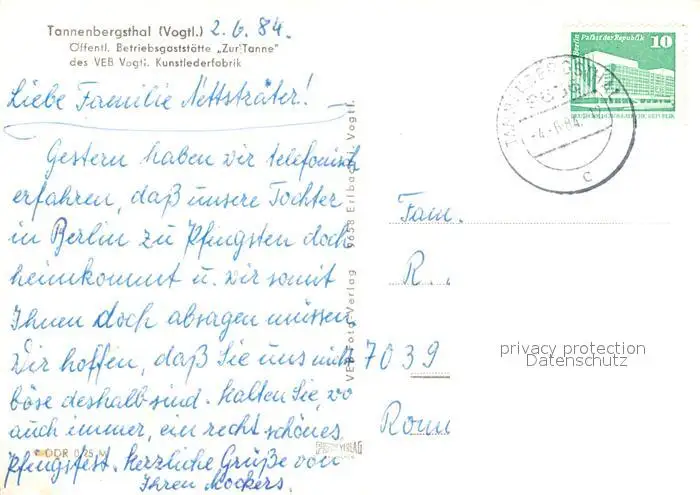 Tannenbergsthal (Vogtl.) 2.6.84.
Öffentl. Betriebsgaststätte „Zur Tanne"
des VEB Vogtl. Kunstlederfabrik
Liebe Familie Nettsträter!
Gestern haben wir telefonisch
erfahren, daß unsere Tochter
in Berlin zu Pfingsten doch
heimkommt u. wir somit
Ihnen doch absagen müssen
Wir hoffen, daß Sie uns nicht
böse deshalb sind. Halten Sie, wo
auch immer, ein recht schönes
Pfingstfest. Herzliche Grüße von
Ihren Mockers.
DDR 0,25 M
VEB Foto-Verlag 9658 Erlbach Vogtl.
VERLAG
Berlin Palast der Republik
10
-4.-6.84.
c
Fam.
R.
7039
privacy protection
Datenschutz